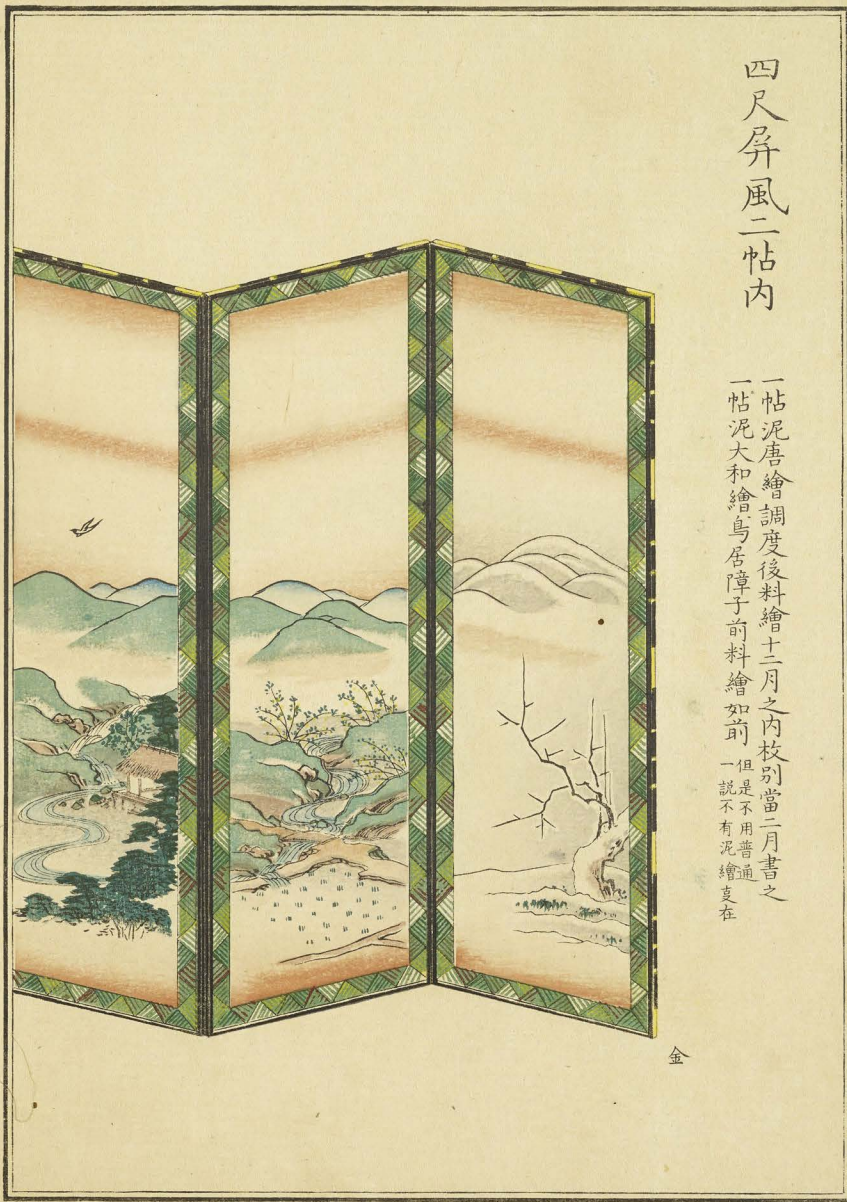 四尺屏風二帖内
一帖泥唐繪調度後料繪十二月之内枚別當二月書之
一帖泥大和繪鳥居障子前料繪如前
但是不用普通
一説不有泥繪㕝在
金